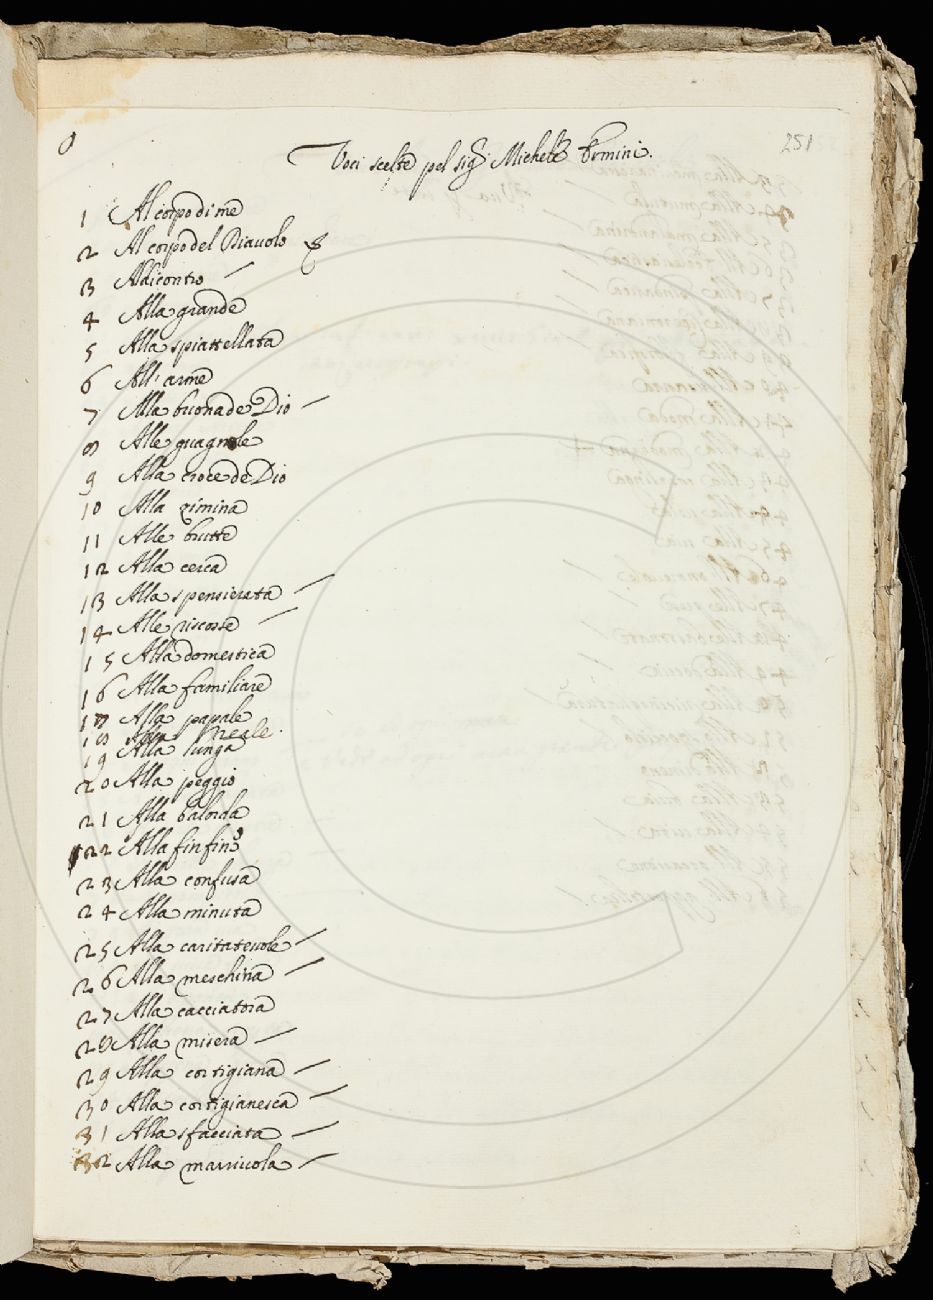 251
Voci scelte pel sig.r Michele Ermini.
1 Al corpo di me
2 Al corpo del Diavolo
3 Al dicontro
4 Alla grande
5 Alla spiattellata
6 All'arme
7 Alla buona de Dio
8 Alle guagnele
9 Alla croce de Dio
10 Alla zimina
11 Alle brutte
12 Alla cerca
13 Alla spensierata
14 Alle riscosse
15 Alla domestica
16 Alla familiare
17 Alla papale
18 Alla Reale.
19 Alla lunga
20 Alla peggio
21 Alla balorda
22 Alla fin fine
23 Alla confusa
24 Alla minuta
25 Alla caritatevole
26 Alla meschina
27 Alla cacciatora
28 Alla misera
29 Alla cortigiana
30 Alla cortigianesca
31 Alla sfacciata
32 Alla marivola